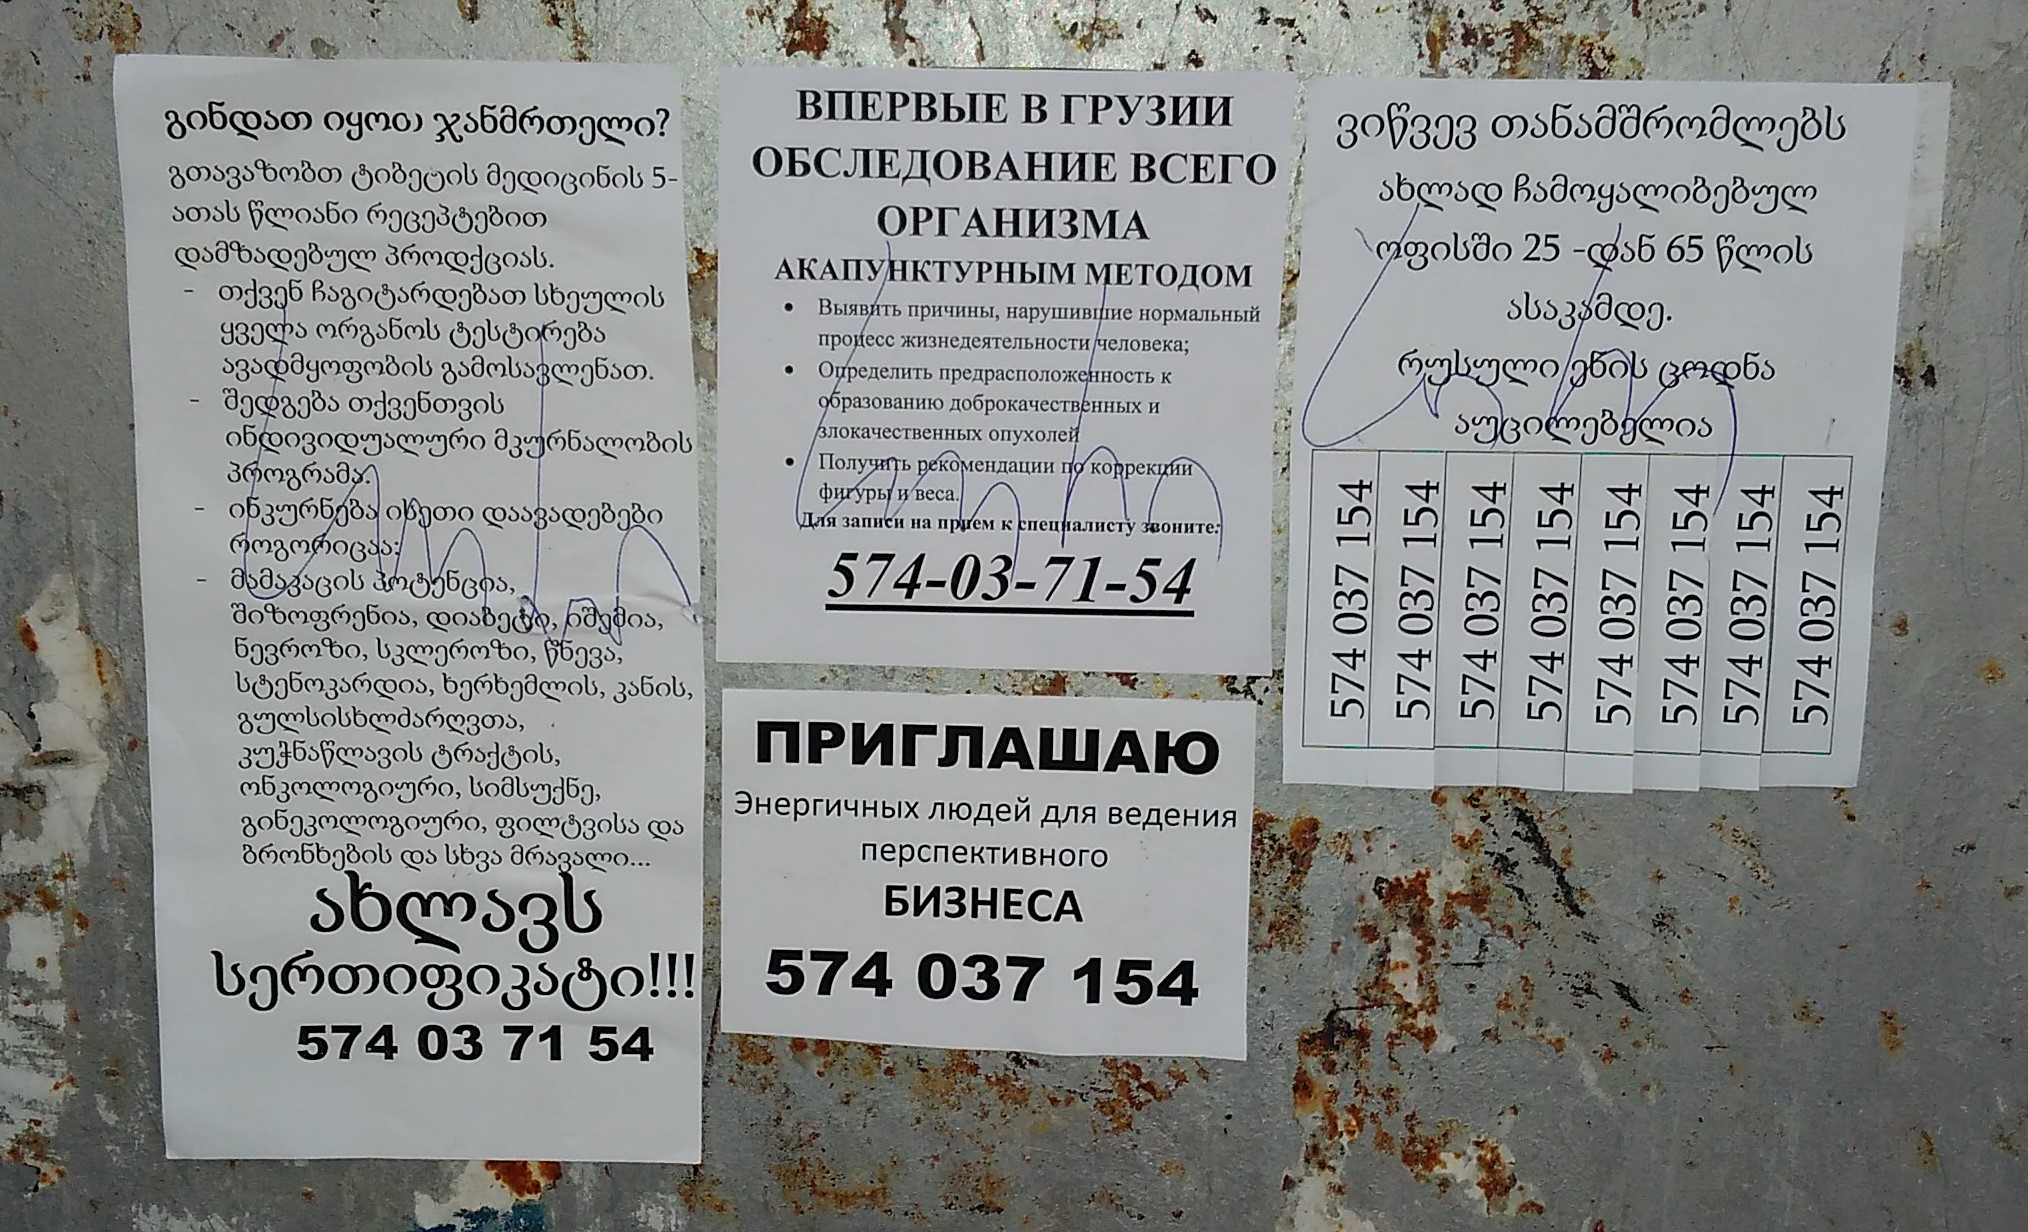 გინდათ იყოთ ჯანმრთელი?
გთავაზობთ ტიბეტის მედიცინის 5-
ათას წლიანი რეცეპტებით
დამზადებულ პროდქციას.
- თქვენ ჩაგიტარდებათ სხეულის
ყველა ორგანოს ტესტირება
ავადმყოფობის გამოსავლენათ.
- შედგება თქვენთვის
ინდივიდუალური მკურნალობის
პროგრამა.
- ინკურნება ისეთი დაავადებები
როგორიცაა:
- მამაკაცის პოტენცია,
შიზოფრენია, დიაბეტი, იშემია,
ნევროზი, სკლეროზი, წნევა,
სტენოკარდია, ხერხემლის, კანის,
გულსისხლძარღვთა,
კუჭნაწლავის ტრაქტის,
ონკოლოგიური, სიმსუქნე,
გინეკოლოგიური, ფილტვისა და
ბრონხების და სხვა მრავალი...
ახლავს
სერთიფიკატი!!!
574 03 71 54
ВПЕРВЫЕ В ГРУЗИИ
ОБСЛЕДОВАНИЕ ВСЕГО
ОРГАНИЗМА
АКАПУНКТУРНЫМ МЕТОДОМ
• Выявить причины, нарушившие нормальный
процесс жизнедеятельности человека;
• Определить предрасположенность к
образованию доброкачественных и
злокачественных опухолей
• Получить рекомендации по коррекции
фигуры и веса.
Для записи на прием к специалисту звоните:
574-03-71-54
ПРИГЛАШАЮ
Энергичных людей для ведения
перспективного
БИЗНЕСА
574 037 154
ვიწვევ თანამშრომლებს
ახლად ჩამოყალიბებულ
ოფისში 25 -დან 65 წლის
ასაკამდე.
რუსული ენის ცოდნა
აუცილებელია
574 037 154
574 037 154
574 037 154
574 037 154
574 037 154
574 037 154
574 037 154
574 037 154